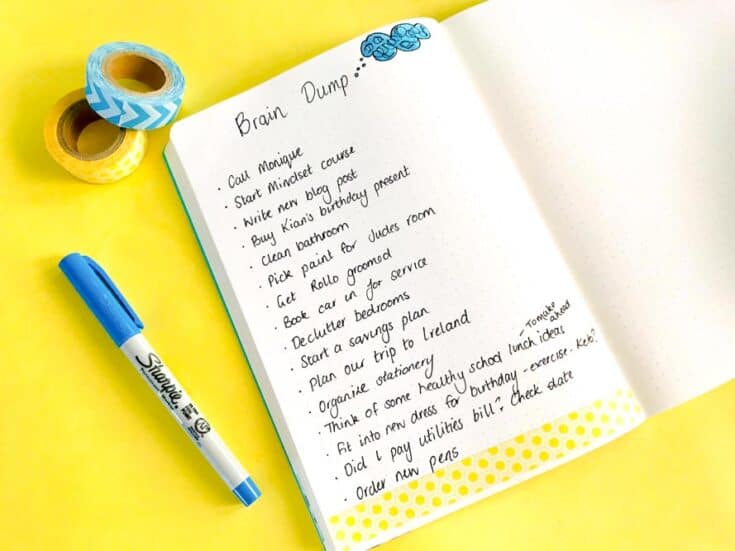 Brain Dump
• Call Monique
• Start Mindset course
• Write new blog post
• Buy Kian's birthday present
• Clean bathroom
• Pick paint for Judes room
• Get Rollo groomed
• Book car in for service
• Declutter bedrooms
• Start a savings plan
• Plan our trip to Ireland
• Organise stationery
• Think of some healthy school lunch ideas
– To make ahead
• Fit into new dress for birthday - exercise - Keto?
• Did I pay utilities bill? Check state
• Order new pens
Sharpie